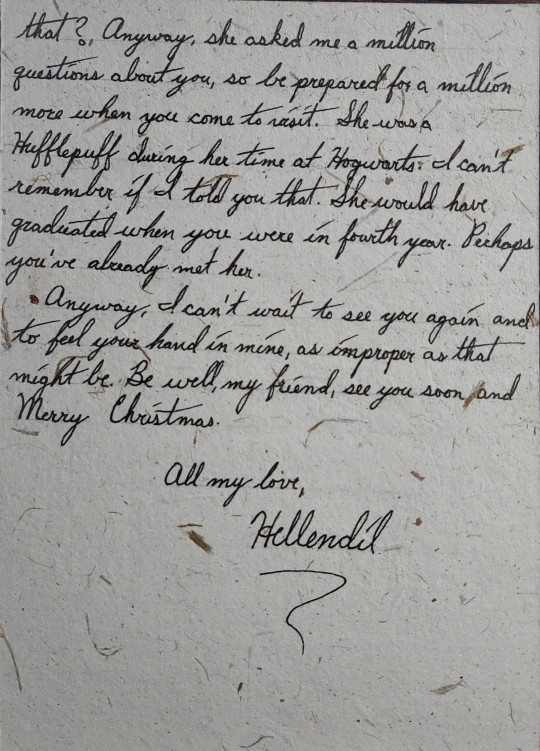 that?, Anyway, she asked me a million
questions about you, so be prepared for a million
more when you come to visit. She was a
Hufflepuff during her time at Hogwarts; I can't
remember if I told you that. She would have
graduated when you were in fourth year. Perhaps
you've already met her.
Anyway, I can't wait to see you again and
to feel your hand in mine, as improper as that
might be. Be well, my friend, see you soon, and
Merry Christmas.
All my love,
Hellendil